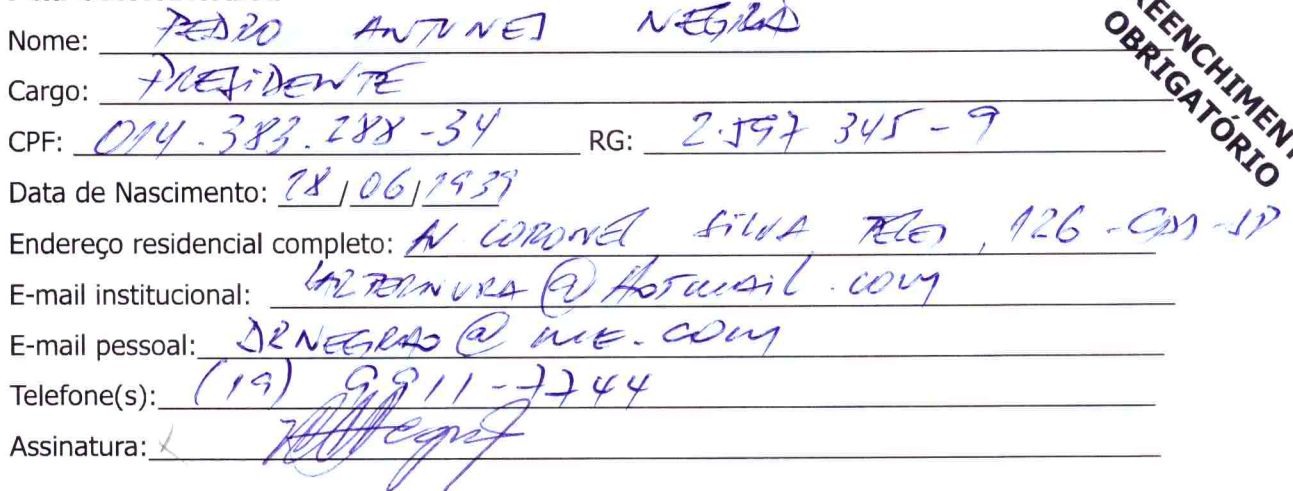 Nome: PEDRO ANTUNES NEGRÃO
Cargo: PRESIDENTE
CPF: 014.383.288-34 RG: 2.597 345-9
Data de Nascimento: 28/06/1939
Endereço residencial completo: AV. CORONEL SILVA TELES, 126 - CPS - SP
E-mail institucional: LARTERNURA@HOTMAIL.COM
E-mail pessoal: DRNEGRAO@ME.COM
Telefone(s): (19) 9911-7744
Assinatura:
EENCHIMEN
OBRIGATÓRIO